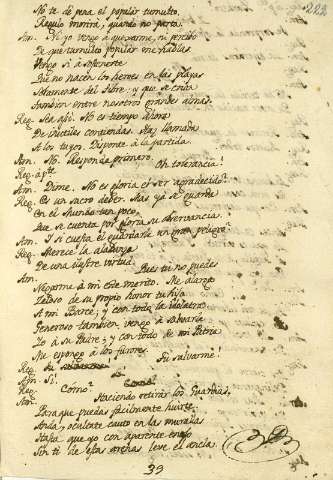 223
No te dé pena el popular tumulto.
Regulo morirá, quando no parta.
Am. Ni yo vengo á quexarme, ni pretendo
De que tumulto popular me hablas
Vengo si á
Que no nacen los heroes en las playas
Solamente del Tibre: y que se crian
Tambien entre nosotros grandes almas.
Reg. Sea asi. No es tiempo ahora
De inutiles contiendas. Mas llamada
A los tuyos. Disponte á la partida.
Am. No. Responde primero.
Reg. apte. Oh tolerancia!
Am. Dime. No es gloria el ser agradecido?
Reg. Es un sacro deber. Mas ya se guarda
En el Mundo tan poco,
Que se cuenta por gloria su observancia.
Am. Y si cuesta el guardarla un gran peligro?
Reg. Merece la alabanza
De una ilustre virtud.
Am. Pues tu no puedes
Negarme á mi este merito. Me
Zeloso de su propio honor tu hijo
A mi Barce; y con todo la idolatra:
Generoso tambien vengo á salvarla
Yo á su Padre; y con todo de mi Patria
Me expongo á los furores.
Reg. Tu salvarme!
Am. Si.
Reg. Como?
Am. Haciendo retirar las Guardias,
Para que puedas facilmente huirte.
Anda, ocultate cauto en las murallas
Hasta que yo con aparente enojo
Sin ti de estas arenas leve el ancla.
39